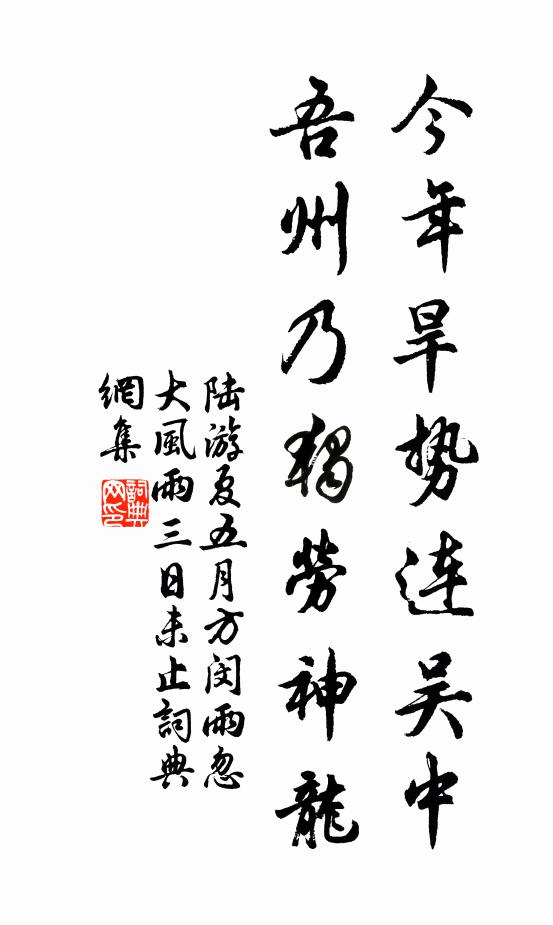 今年旱势连吴中
吾州乃獨勞神龍
陆游夏五月方闵雨忽
大風雨三日未止詞典
網集
詞典
网印